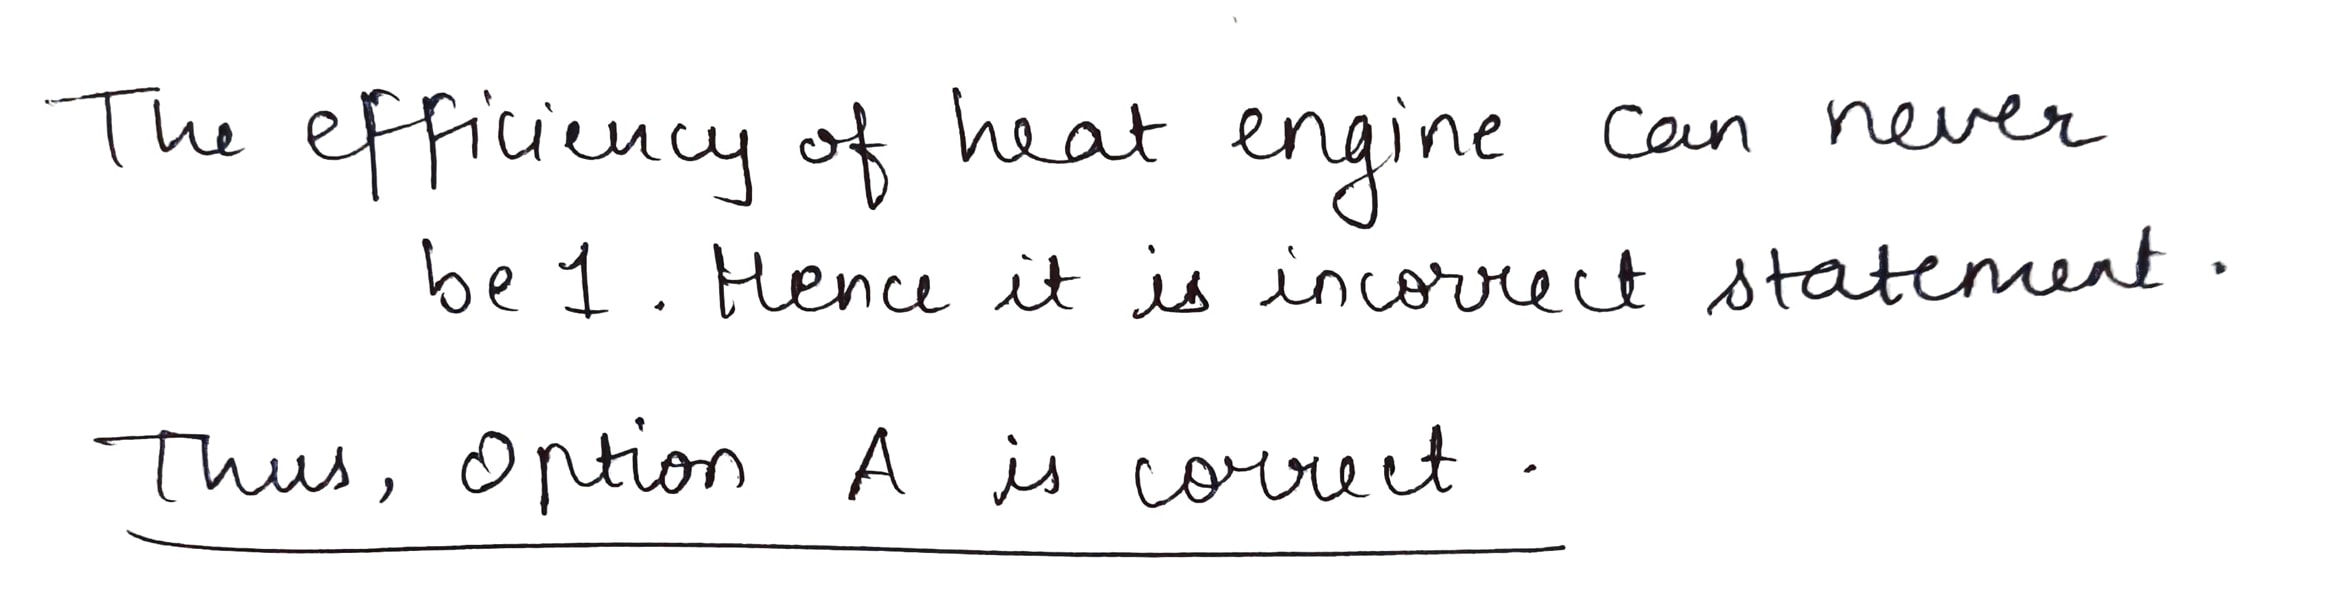 The efficiency of heat engine can never
be 1. Hence it is incorrect statement.
Thus, Option A is correct.